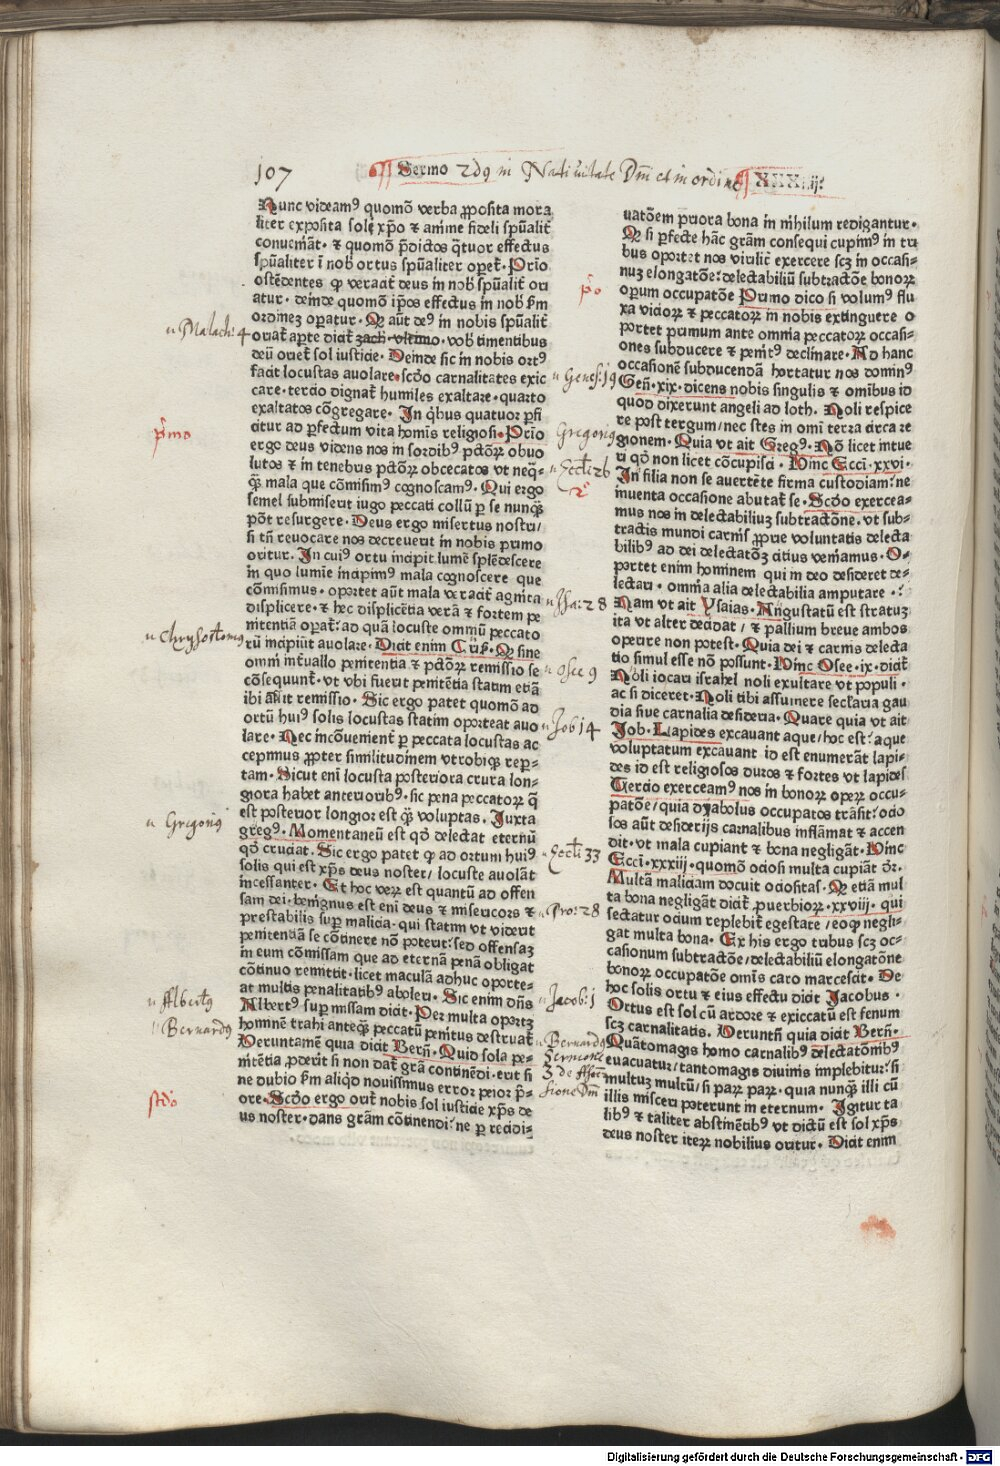 107
Sermo 2dꝰ in Natiuitate Dm̄ et in ordine XXXiij.
Nunc videamꝰ quomō verba ꝓposita mora
liter exposita soleꝫ xp̄o & anime fideli spūalit̄
conueniāt. & quomō p̄dictos q̄tuor effectus
spūaliter ī nobꝭ ortus spūaliter opet̄. Prīo
ostēdentes ꝙ veracit̄ deus in nobꝭ spūalit̄ ori
atur. deinde quomō ip̄os effectus in nobꝭ ẜm
ordinez opatur. Qꝫ aūt deꝰ in nobis spūalit̄
oriat̄ aperte dicit̄ zach. vltimo. vobꝭ timentibus
deū oriet̄ sol iusticie. Deinde sic in nobis ortꝰ
facit locustas auolare. scd̄o carnalitates exic
care. tercio dignat̄ humiles exaltare. quarto
exaltatos cōgregare. In q̄bus quatuor ꝑfi
citur ad ꝑfectum vita homīs religiosi. Prīo
ergo deus videns nos in sordibꝰ pctōꝝ obuo
lutos & in tenebus pctōꝝ obcecatos vt neq̄-
q̄ꝫ mala que cōmisimꝰ cognoscamꝰ. Qui ergo
semel submiserit iugo peccati collū ꝑ se nunq̄ꝫ
pōt resurgere. Deus ergo misertus nostri/
si tn̄ reuocare nos decreuerit in nobis primo
oritur. In cuiꝰ ortu incipit lumē splēdescere
in quo lumīe incipimꝰ mala cognoscere que
cōmisimus. oportet aūt mala veracit̄ agnita
displicere. & hec displicētia verā & fortem pe
nitentiā opat̄. ad quā locuste omniū peccato
rū incipiūt auolare. Dicit enim Crisꝭ. Qꝫ sine
omni int̄uallo penitentia & pctōꝝ remissio se
cōsequunt̄. vt vbi fuerit penitētia statim etiā
ibi assit remissio. Sic ergo patet quomō ad
ortū huiꝰ solis locustas statim oporteat auo
lare. Nec incōuenient̄ ꝑ peccata locustas ac
cepimus ꝓpter similitudinem vtrobiqꝫ reper-
tam. Sicut enī locusta posteriora crura lon-
giora habet anterioribꝰ. sic pena peccatoꝝ q̄
est posterior longior est q̄ꝫ voluptas. Iuxta
gregꝰ. Momentaneū est qd̄ delectat eternū
qd̄ cruciat. Sic ergo patet ꝙ ad ortum huiꝰ
solis qui est xp̄s deus noster/ locuste auolāt
incessanter. Et hoc veꝝ est quantū ad offen
sam dei. benignus est enī deus & misericors &
prestabilis suꝑ malicia. qui statim vt viderit
penitentiā se cōtinere nō poterit. sed offensaz
in eum cōmissam que ad eternā penā obligat
cōtinuo remittit. licet maculā adhuc oporte-
at multis penalitatibꝰ aboleri. Sic enim dn̄s
Albertꝰ suꝑ missam dicit. Per multa oportꝫ
hominē trahi anteqꝫ peccatū penitus destruat̄
Veruntamē quia dicit Bern̄. Quid sola pe-
nitētia ꝓderit si non dat̄ grām cōtinēdi. erit si
ne dubio ẜm aliqd̄ nouissimus error peior p̄-
ore. Scd̄o ergo orit̄ nobis sol iusticie xp̄s de
us noster. dans grām cōtinendi. ne ꝑ recidi-
uatōem priora bona in nihilum redigantur.
Qꝫ si ꝑfecte hāc grām consequi cupimꝰ in tri
bus oportet nos virilit̄ exercere scꝫ in occasi-
nuꝫ elongatōe. delectabiliū subtractōe bonoꝝ
opum occupatōe Primo dico si volumꝰ flu
xa vicioꝝ & peccatoꝝ in nobis extinguere o
portet primum ante omnia peccatoꝝ occasi-
ones subducere & penit̄ declinare. Ad hanc
occasionē subducendā hortatur nos dominꝰ
Gen̄. xix. dicens nobis singulis & omībus id
quod dixerunt angeli ad loth. Noli respice
re post tergum/ nec stes in omī terra circa re
gionem. Quia vt ait Gregꝰ. Nō licet intue
ri qd̄ non licet cōcupisci. Hinc Ecci. xxvi.
In filia non se auertēte firma custodiam. ne
inuenta occasione abutat̄ se. Scd̄o exercea-
mus nos in delectabiliuꝫ subtractōne. vt sub-
tractis mundi carnis ꝓprie voluntatis delecta
bilibꝰ ad dei delectatōꝫ citius veniamus. O-
portet enim hominem qui in deo desideret de-
lectari. omnia alia delectabilia amputare.
Nam vt ait Ysaias. Angustatū est stratuꝫ
ita vt alter decidat/ & pallium breue ambos
operire non potest. Quia dei & carnis delecta
tio simul esse nō possunt. Hinc Osee. ix. dicit̄
Noli iocari israhel noli exultare vt populi.
ac si diceret. Noli tibi assumere secularia gau
dia siue carnalia desideria. Quare quia vt ait
Iob. Lapides excauant aque/ hoc est. aque
voluptatum excauant id est eneruāt lapi-
des id est religiosos duros & fortes vt lapides
Tercio exerceamꝰ nos in bonoꝝ opeꝝ occu-
patōe/ quia dyabolus occupatos trāsit. ocio
sos aūt desiderijs carnalibus inflāmat & accen
dit. vt mala cupiant & bona negligāt. Hinc
Ecci. xxxiij. quomō ociosi multa cupiāt dꝛ.
Multā maliciam docuit ociositas. Qꝫ etiā mul
ta bona negligāt dicit̄ prouerbioꝝ. xxviij. qui
sectatur ocium replebit̄ egestate/ eoqꝫ negli-
gat multa bona. Ex his ergo tribus scꝫ oc-
casionum subtractōe/ delectabiliū elongatōne
bonoꝝ occupatōe omīs caro marcescit. De
hoc solis ortu & eius effectu dicit Jacobus.
Ortus est sol cū ardore & exiccatū est fenum
scꝫ carnalitatis. Veruntn̄ quia dicit Bern̄.
Quātomagis homo carnalibꝰ delectatōnibꝰ
euacuatur/ tantomagis diuinis implebitur. si
multuꝫ multū/ si paꝝ paꝝ. quia nunqꝫ illi cū
illis misceri poterunt in eternum. Igitur ta
libꝰ & taliter abstinētibꝰ vt dictū est sol xp̄s
deus noster iteꝝ nobilius oritur. Dicit enim
Malach. 4
p̄mo
Chrysostomꝰ
Gregoriꝰ
Albertꝰ
Bernardꝰ
scd̄o
p̄o
Genes. 19
Gregoriꝰ
Eccl̄i 26
2
Isa. 28
Osee 9
Job 14
Eccl̄i 33
Pro. 28
Jacob. 1
Bernardꝰ
Sermone
3 de Ascē
sione Dm̄
Digitalisierung gefördert durch die Deutsche Forschungsgemeinschaft - DFG